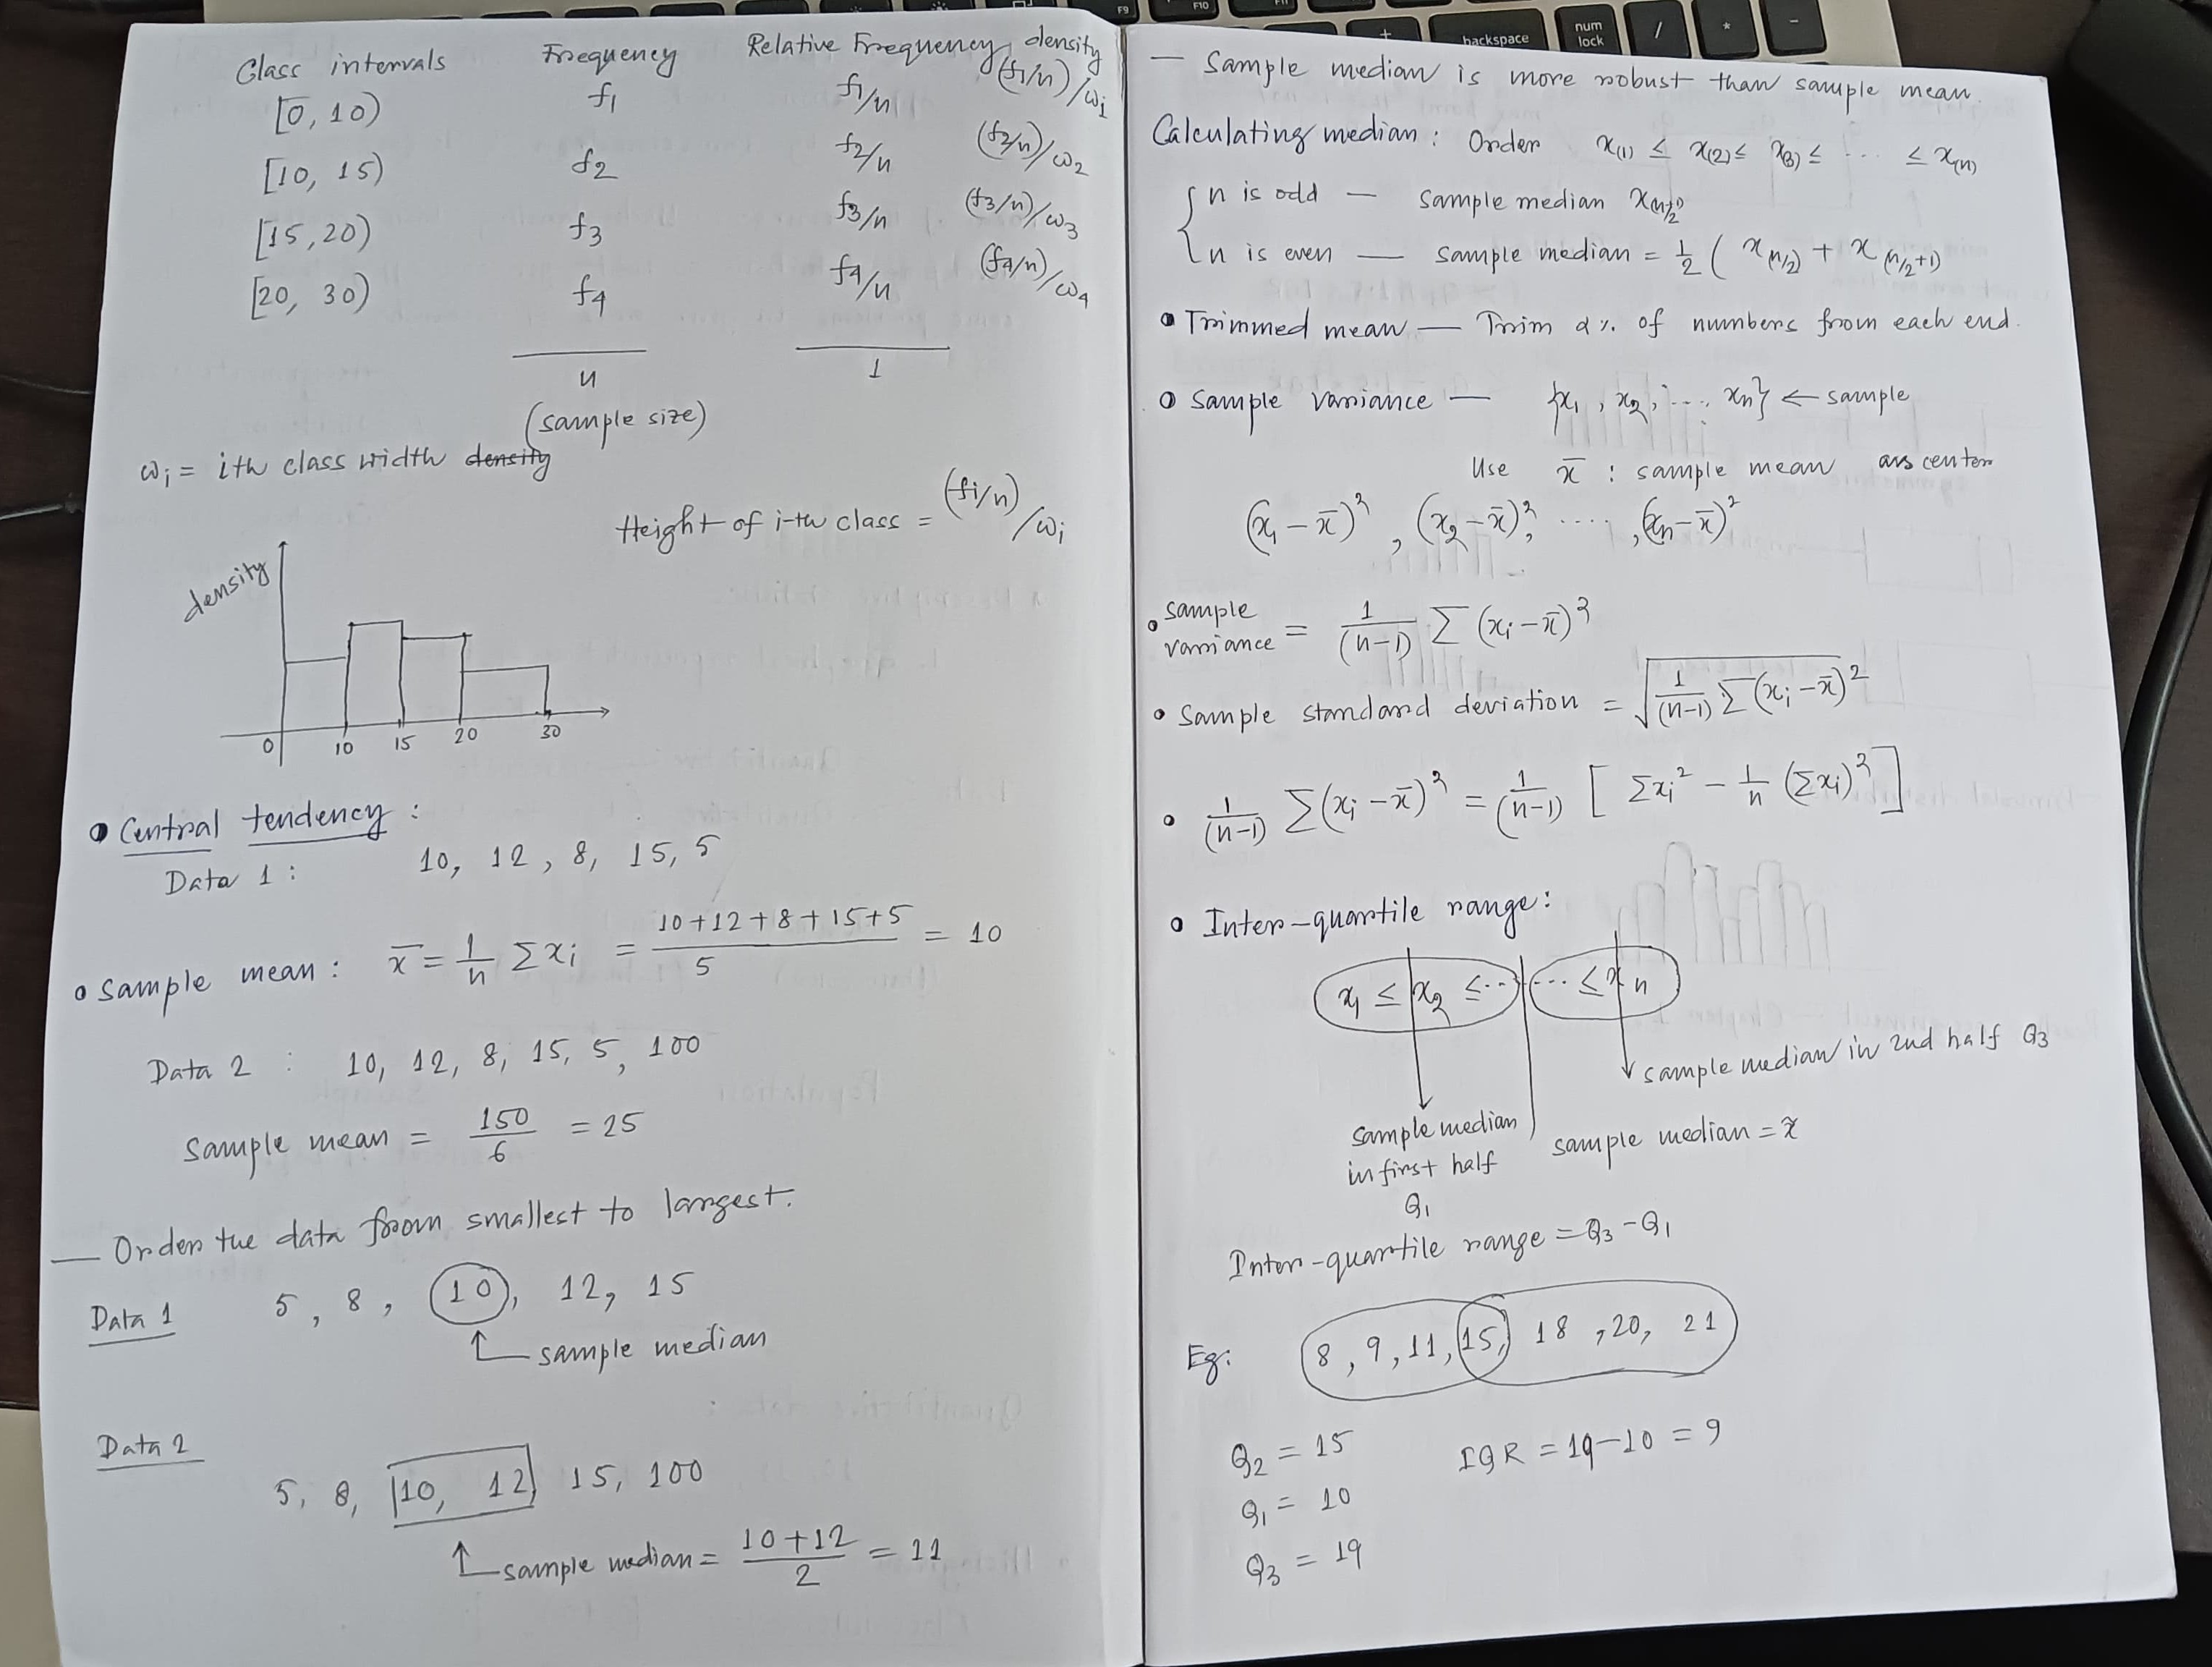 Class intervals Frequency Relative Frequency density
[0, 10) f1 f1/n (f1/n)/w1
[10, 15) f2 f2/n (f2/n)/w2
[15, 20) f3 f3/n (f3/n)/w3
[20, 30) f4 f4/n (f4/n)/w4
n 1
(sample size)
wi = ith class width density
Height of i-th class = (fi/n)/wi
density
0 10 15 20 30
• Central tendency :
Data 1 : 10, 12, 8, 15, 5
• Sample mean : x̄ = 1/n Σxi = (10+12+8+15+5)/5 = 10
Data 2 : 10, 12, 8, 15, 5, 100
Sample mean = 150/6 = 25
— Order the data from smallest to largest.
Data 1 5, 8, 10, 12, 15
↑ sample median
Data 2
5, 8, 10, 12 15, 100
↑ sample median = (10+12)/2 = 11
— Sample median is more robust than sample mean.
Calculating median : Order x(1) ≤ x(2) ≤ x(3) ≤ ... ≤ x(n)
{ n is odd — sample median
n is even — sample median = 1/2 ( x(n/2) + x(n/2+1)
• Trimmed mean — Trim α% of numbers from each end.
• Sample variance — {x1, x2, ..., xn} ← sample
Use x̄ : sample mean as center
(x1 − x̄)², (x2 − x̄)², ...., (xn − x̄)²
• sample variance = 1/(n−1) Σ (xi − x̄)²
• Sample standard deviation = √(1/(n−1) Σ(xi − x̄)²)
• 1/(n−1) Σ(xi − x̄)² = 1/(n−1) [ Σxi² − 1/n (Σxi)² ]
• Inter-quartile range :
x1 ≤ x2 ≤ ... ... ≤ xn
sample median in 2nd half Q3
sample median
in first half
Q1
sample median = x̃
Inter-quartile range = Q3 − Q1
Eg: 8, 9, 11, 15, 18, 20, 21
Q2 = 15 IQR = 19−10 = 9
Q1 = 10
Q3 = 19
F9
F10
+
backspace
num
lock
/
*
-